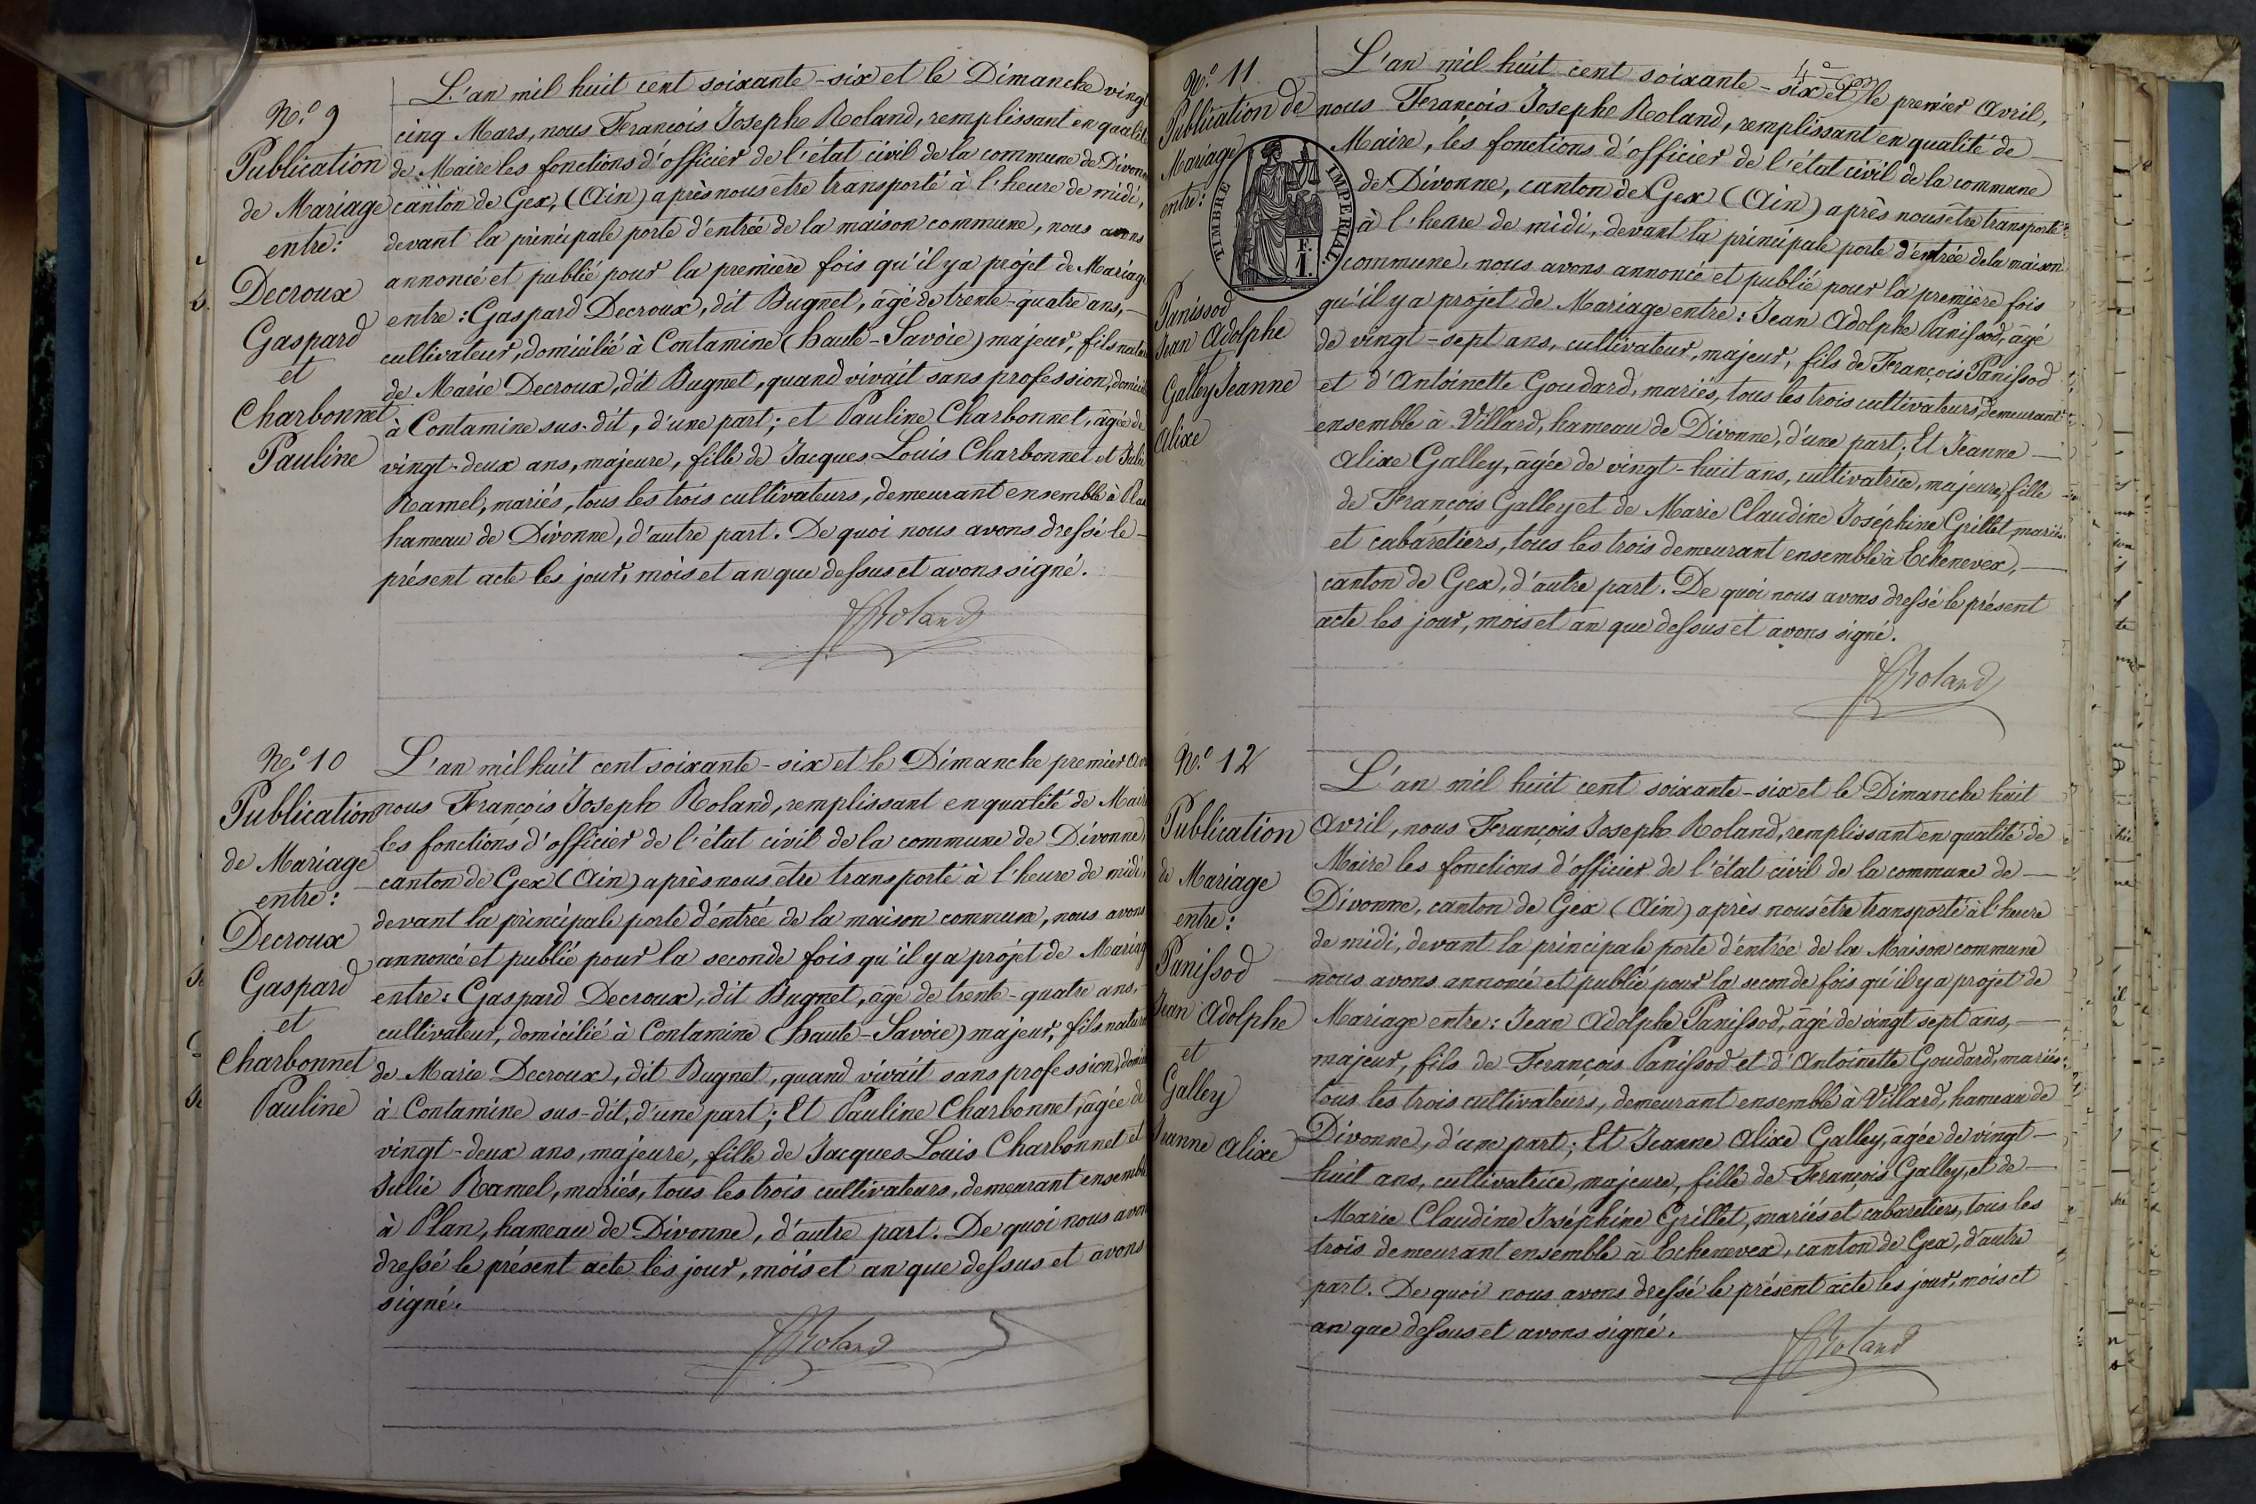 N.º 9
Publication
de Mariage
entre:
Decroux
Gaspard
et
Charbonnet
Pauline
L'an mil huit cent soixante-six et le Dimanche vingt
cinq Mars, nous François Joseph Roland, remplissant en qualité
de Maire les fonctions d'officier de l'état civil de la commune de Divonne
canton de Gex, (Ain) après nous être transporté à l'heure de midi,
devant la principale porte d'entrée de la maison commune, nous avons
annoncé et publié pour la première fois qu'il y a projet de Mariage
entre: Gaspard Decroux, dit Bugnet, âgé de trente-quatre ans,
cultivateur, domicilié à Contamine (haute-Savoie) majeur, fils nature
de Marie Decroux, dit Bugnet, quand vivait sans profession, domicili
à Contamine sus-dit, d'une part; et Pauline Charbonnet, âgée de
vingt-deux ans, majeure, fille de Jacques Louis Charbonnet et Julie
Ramel, mariés, tous les trois cultivateurs, demeurant ensemble à Plan
hameau de Divonne, d'autre part. De quoi nous avons dressé le
présent acte les jour, mois et an que dessus et avons signé.
FJRoland
N.º 10
Publication
de Mariage
entre:
Decroux
Gaspard
et
Charbonnet
Pauline
L'an mil huit cent soixante-six et le Dimanche premier Av
nous François Joseph Roland, remplissant en qualité de Maire
les fonctions d'officier de l'état civil de la commune de Divonne,
canton de Gex (Ain) après nous être transporté à l'heure de midi,
devant la principale porte d'entrée de la maison commune, nous avons
annoncé et publié pour la seconde fois qu'il y a projet de Mariage
entre: Gaspard Decroux, dit Bugnet, âgé de trente-quatre ans,
cultivateur, domicilié à Contamine (haute-Savoie) majeur, fils naturel
de Marie Decroux, dit Bugnet, quand vivait sans profession, domici
à Contamine sus-dit, d'une part; Et Pauline Charbonnet, âgée de
vingt-deux ans, majeure, fille de Jacques Louis Charbonnet et
Julie Ramel, mariés, tous les trois cultivateurs, demeurant ensemble
à Plan, hameau de Divonne, d'autre part. De quoi nous avons
dressé le présent acte les jour, mois et an que dessus et avons
signé.
FJRoland
N.º 11
Publication de
Mariage
entre:
TIMBRE IMPERIAL
1 F.
Panissod
Jean Adolphe
et
Galley Jeanne
Alixe
L'an mil huit cent soixante-six et le premier Avril,
nous François Joseph Roland, remplissant en qualité de
Maire, les fonctions d'officier de l'état civil de la commune
de Divonne, canton de Gex (Ain) après nous être transporté
à l'heure de midi, devant la principale porte d'entrée de la maison
commune, nous avons annoncé et publié pour la première fois
qu'il y a projet de Mariage entre: Jean Adolphe Panissod, âgé
de vingt-sept ans, cultivateur, majeur, fils de François Panissod
et d'Antoinette Goudard, mariés, tous les trois cultivateurs, demeurant
ensemble à Villard, hameau de Divonne, d'une part; Et Jeanne
Alixe Galley, âgée de vingt-huit ans, cultivatrice, majeure, fille
de François Galley et de Marie Claudine Joséphine Grillet, mariés
et cabaretiers, tous les trois demeurant ensemble à Echenevex,
canton de Gex, d'autre part. De quoi nous avons dressé le présent
acte les jour, mois et an que dessus et avons signé.
FJRoland
N.º 12
Publication
de Mariage
entre:
Panissod
Jean Adolphe
et
Galley
Jeanne Alixe
L'an mil huit cent soixante-six et le Dimanche huit
Avril, nous François Joseph Roland, remplissant en qualité de
Maire les fonctions d'officier de l'état civil de la commune de
Divonne, canton de Gex (Ain) après nous être transporté à l'heure
de midi, devant la principale porte d'entrée de la Maison commune
nous avons annoncé et publié pour la seconde fois qu'il y a projet de
Mariage entre: Jean Adolphe Panissod, âgé de vingt sept ans,
majeur, fils de François Panissod et d'Antoinette Goudard, mariés
tous les trois cultivateurs, demeurant ensemble à Villard, hameau de
Divonne, d'une part; Et Jeanne Alixe Galley, âgée de vingt-
huit ans, cultivatrice, majeure, fille de François Galley, et de
Marie Claudine Joséphine Grillet, mariés et cabaretiers, tous les
trois demeurant ensemble à Echenevex, canton de Gex, d'autre
part. De quoi nous avons dressé le présent acte les jour, mois et
an que dessus et avons signé.
FJRoland